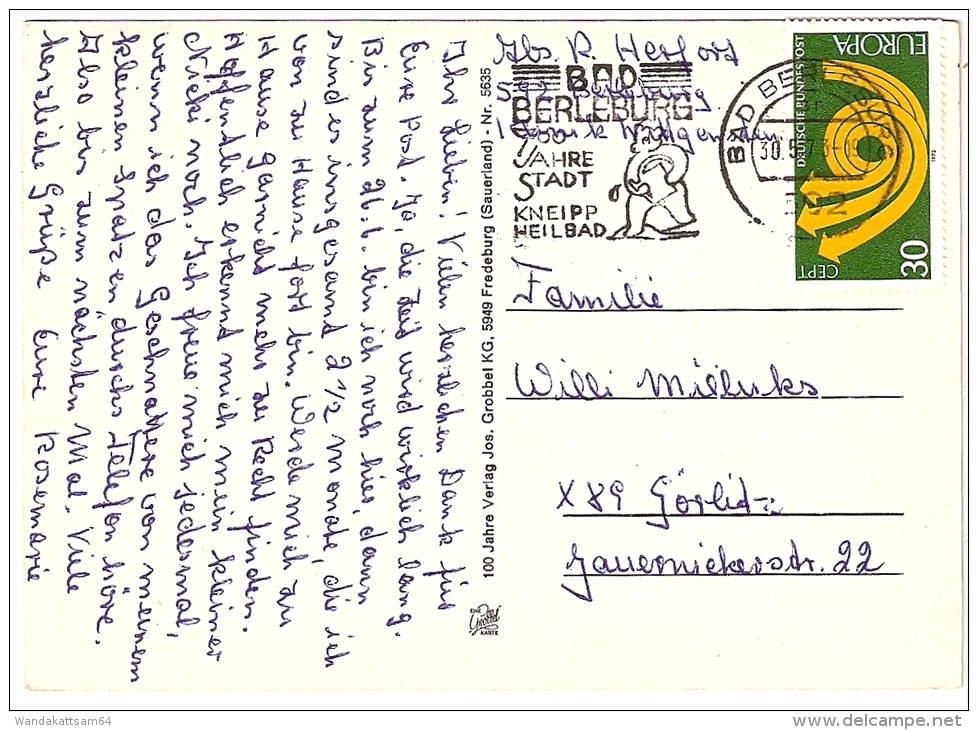 Ihr Lieben! Vielen herzlichen Dank für
Eure Post. Ja, die Zeit wird wirklich lang.
Bis zum 26.6. bin ich noch hier, dann
sind es insgesamt 2 1/2 Monate, die ich
von zu Hause fort bin. Werde mich zu
Hause garnicht mehr zu Recht finden.
Hoffentlich erkennt mich mein kleiner
Nicki noch. Ich freue mich jedesmal,
wenn ich das Geschnattere von meinem
kleinen Spatzen durchs Telefon höre.
Also bis zum nächsten Mal. Viele
herzliche Grüße Eure Rosemarie
100 Jahre Verlag Jos. Grobbel KG, 5949 Fredeburg (Sauerland) - Nr. 5635
EINE
Grobbel
KARTE
Abs. R. Herfort
592 Berleburg
Klinik Wittgenstein
BAD
BERLEBURG
JAHRE
STADT
KNEIPP
HEILBAD
BAD BERLEBURG
30.5.7
592
EUROPA
DEUTSCHE BUNDESPOST
CEPT
30
1973
Familie
Willi Milluks
X 89 Görlitz
Jauernickerstr. 22
Wandakattsam64
www.delcampe.net